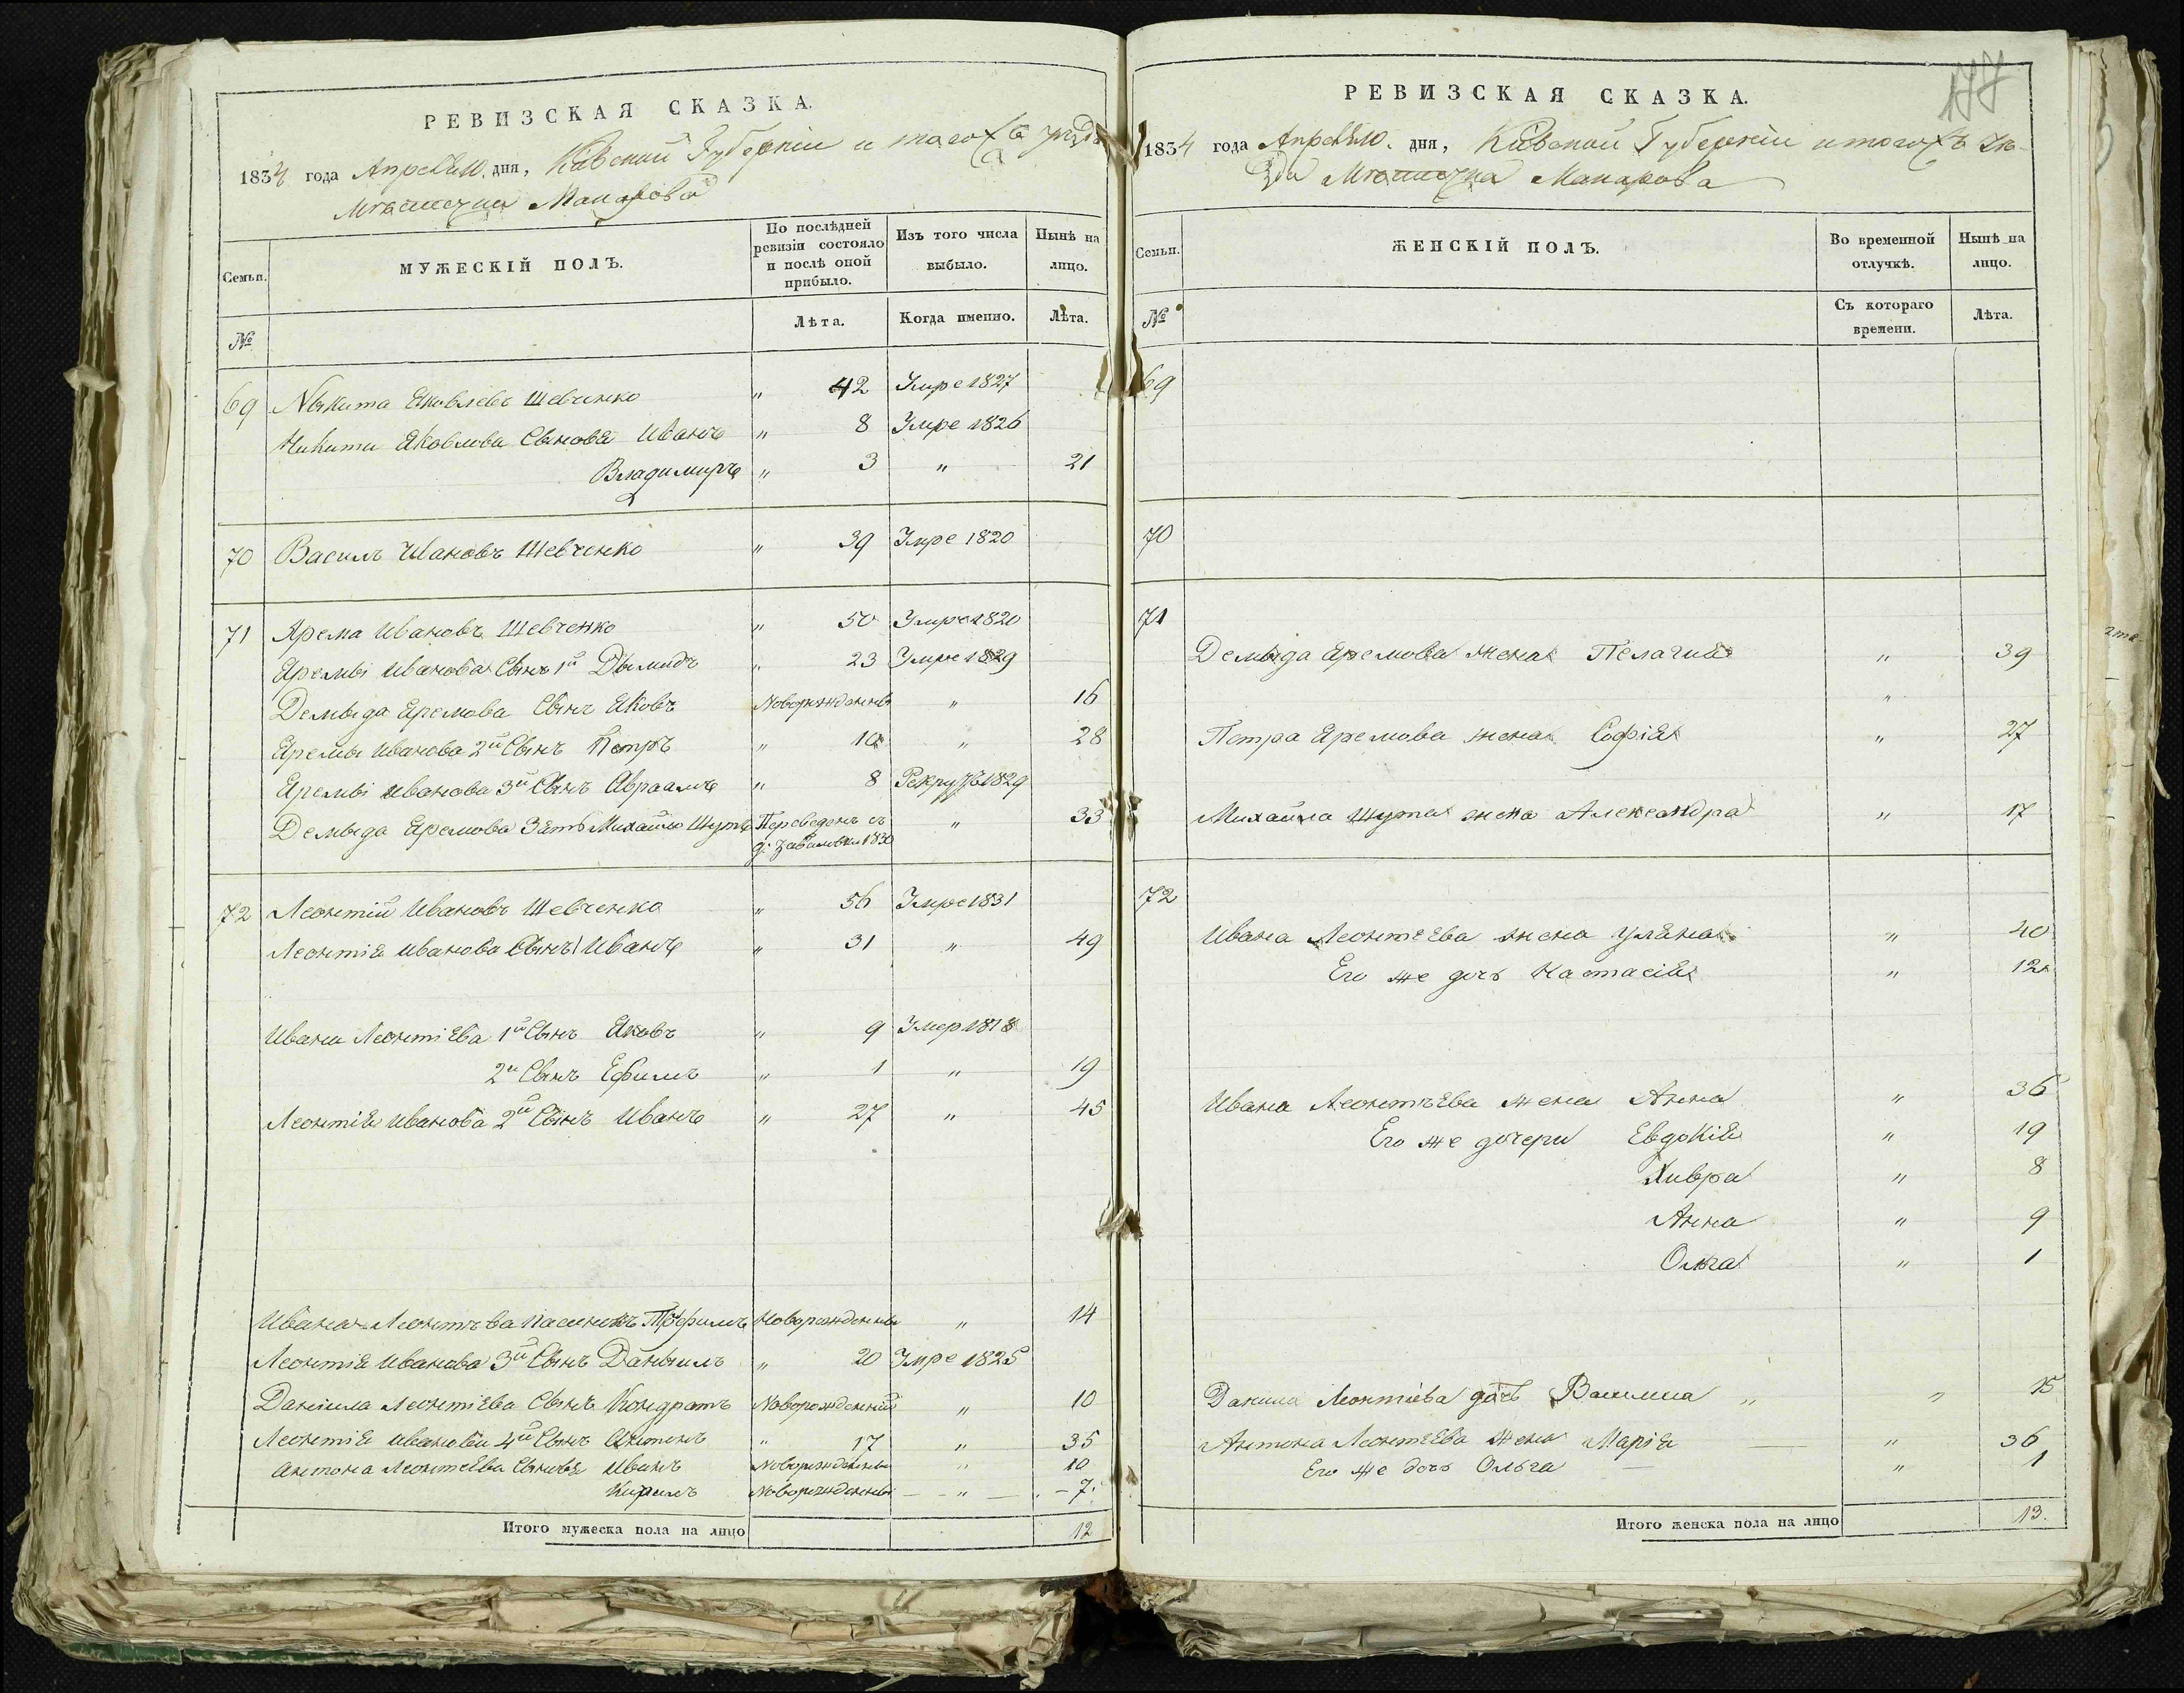 РЕВИЗСКАЯ СКАЗКА.
1834 года Апреля 10. дня, Кіевской Губерніи и тогожъ уѣзда
Мѣстечка Макарова
Семьи. МУЖЕСКІЙ ПОЛЪ. По послѣдней ревизіи состояло и послѣ оной прибыло. Изъ того числа выбыло. Нынѣ на лицо.
№ Лѣта. Когда именно. Лѣта.
69 Никита Яковлевъ Шевченко " 42 Умре 1827
Никиты Яковлева Сыновя Иванъ " 8 Умре 1826
Владимиръ " 3 " 21
70 Василъ Ивановъ Шевченко " 39 Умре 1820
71 Ярема Ивановъ Шевченко " 50 Умре 1820
Яремы Иванова Сынъ 1й Дымидъ " 23 Умре 1829
Демыда Яремова Сынъ Яковъ Новорожденны " 16
Яремы Иванова 2й Сынъ Петръ " 10 " 28
Яремы Иванова 3й Сынъ Авраамъ " 8 Рекрут 1829
Демыда Яремова Зять Михайло Шутъ Переведенъ съ " 33
д: 1830
72 Леонтій Ивановъ Шевченко " 56 Умре 1831
Леонтія Иванова Сынъ 1 Иванъ " 31 " 49
Ивана Леонтіева 1й Сынъ Яковъ " 9 Умер 1818
2й Сынъ Ефимъ " 1 " 19
Леонтія Иванова 2й Сынъ Иванъ " 27 " 45
Ивана Леонтъева пасинокъ Трофимъ Новорожденны " 14
Леонтія Иванова 3й Сынъ Даныилъ " 20 Умре 1825
Даніила Леонтіева Сынъ Кондратъ Новорожденній " 10
Леонтія Иванова 4й Сынъ Антонъ " 17 " 35
Антона Леонтеева Сыновя Иванъ Новорожденны " 10
Кирилъ Новорожденны " 7.
Итого мужеска пола на лицо 12
177
РЕВИЗСКАЯ СКАЗКА.
1834 года Апреля 10. дня, Кіевской Губерніи и тогожъ уѣ-
зда Мѣстечка Макарова
Семьи. ЖЕНСКІЙ ПОЛЪ. Во временной отлучкѣ. Нынѣ на лицо.
№ Съ котораго времени. Лѣта.
69
70
71
Демыда Яремова жена Пелагия " 39
"
Петра Яремова жена Софія " 27
Михайла Шута жена Александра " 17
72
Ивана Леонтеева жена Уляна " 40
Его же дочъ Настасія " 12
Ивана Леонтъева жена Анна " 36
Его же дочери Евдокія " 19
Хивря " 8
Анна " 9
Олга " 1
Данила Леонтіева дочъ " " 15
Антона Леонтеева жена Марія " 36
Его же дочъ Ольга " 1
Итого женска пола на лицо 13.